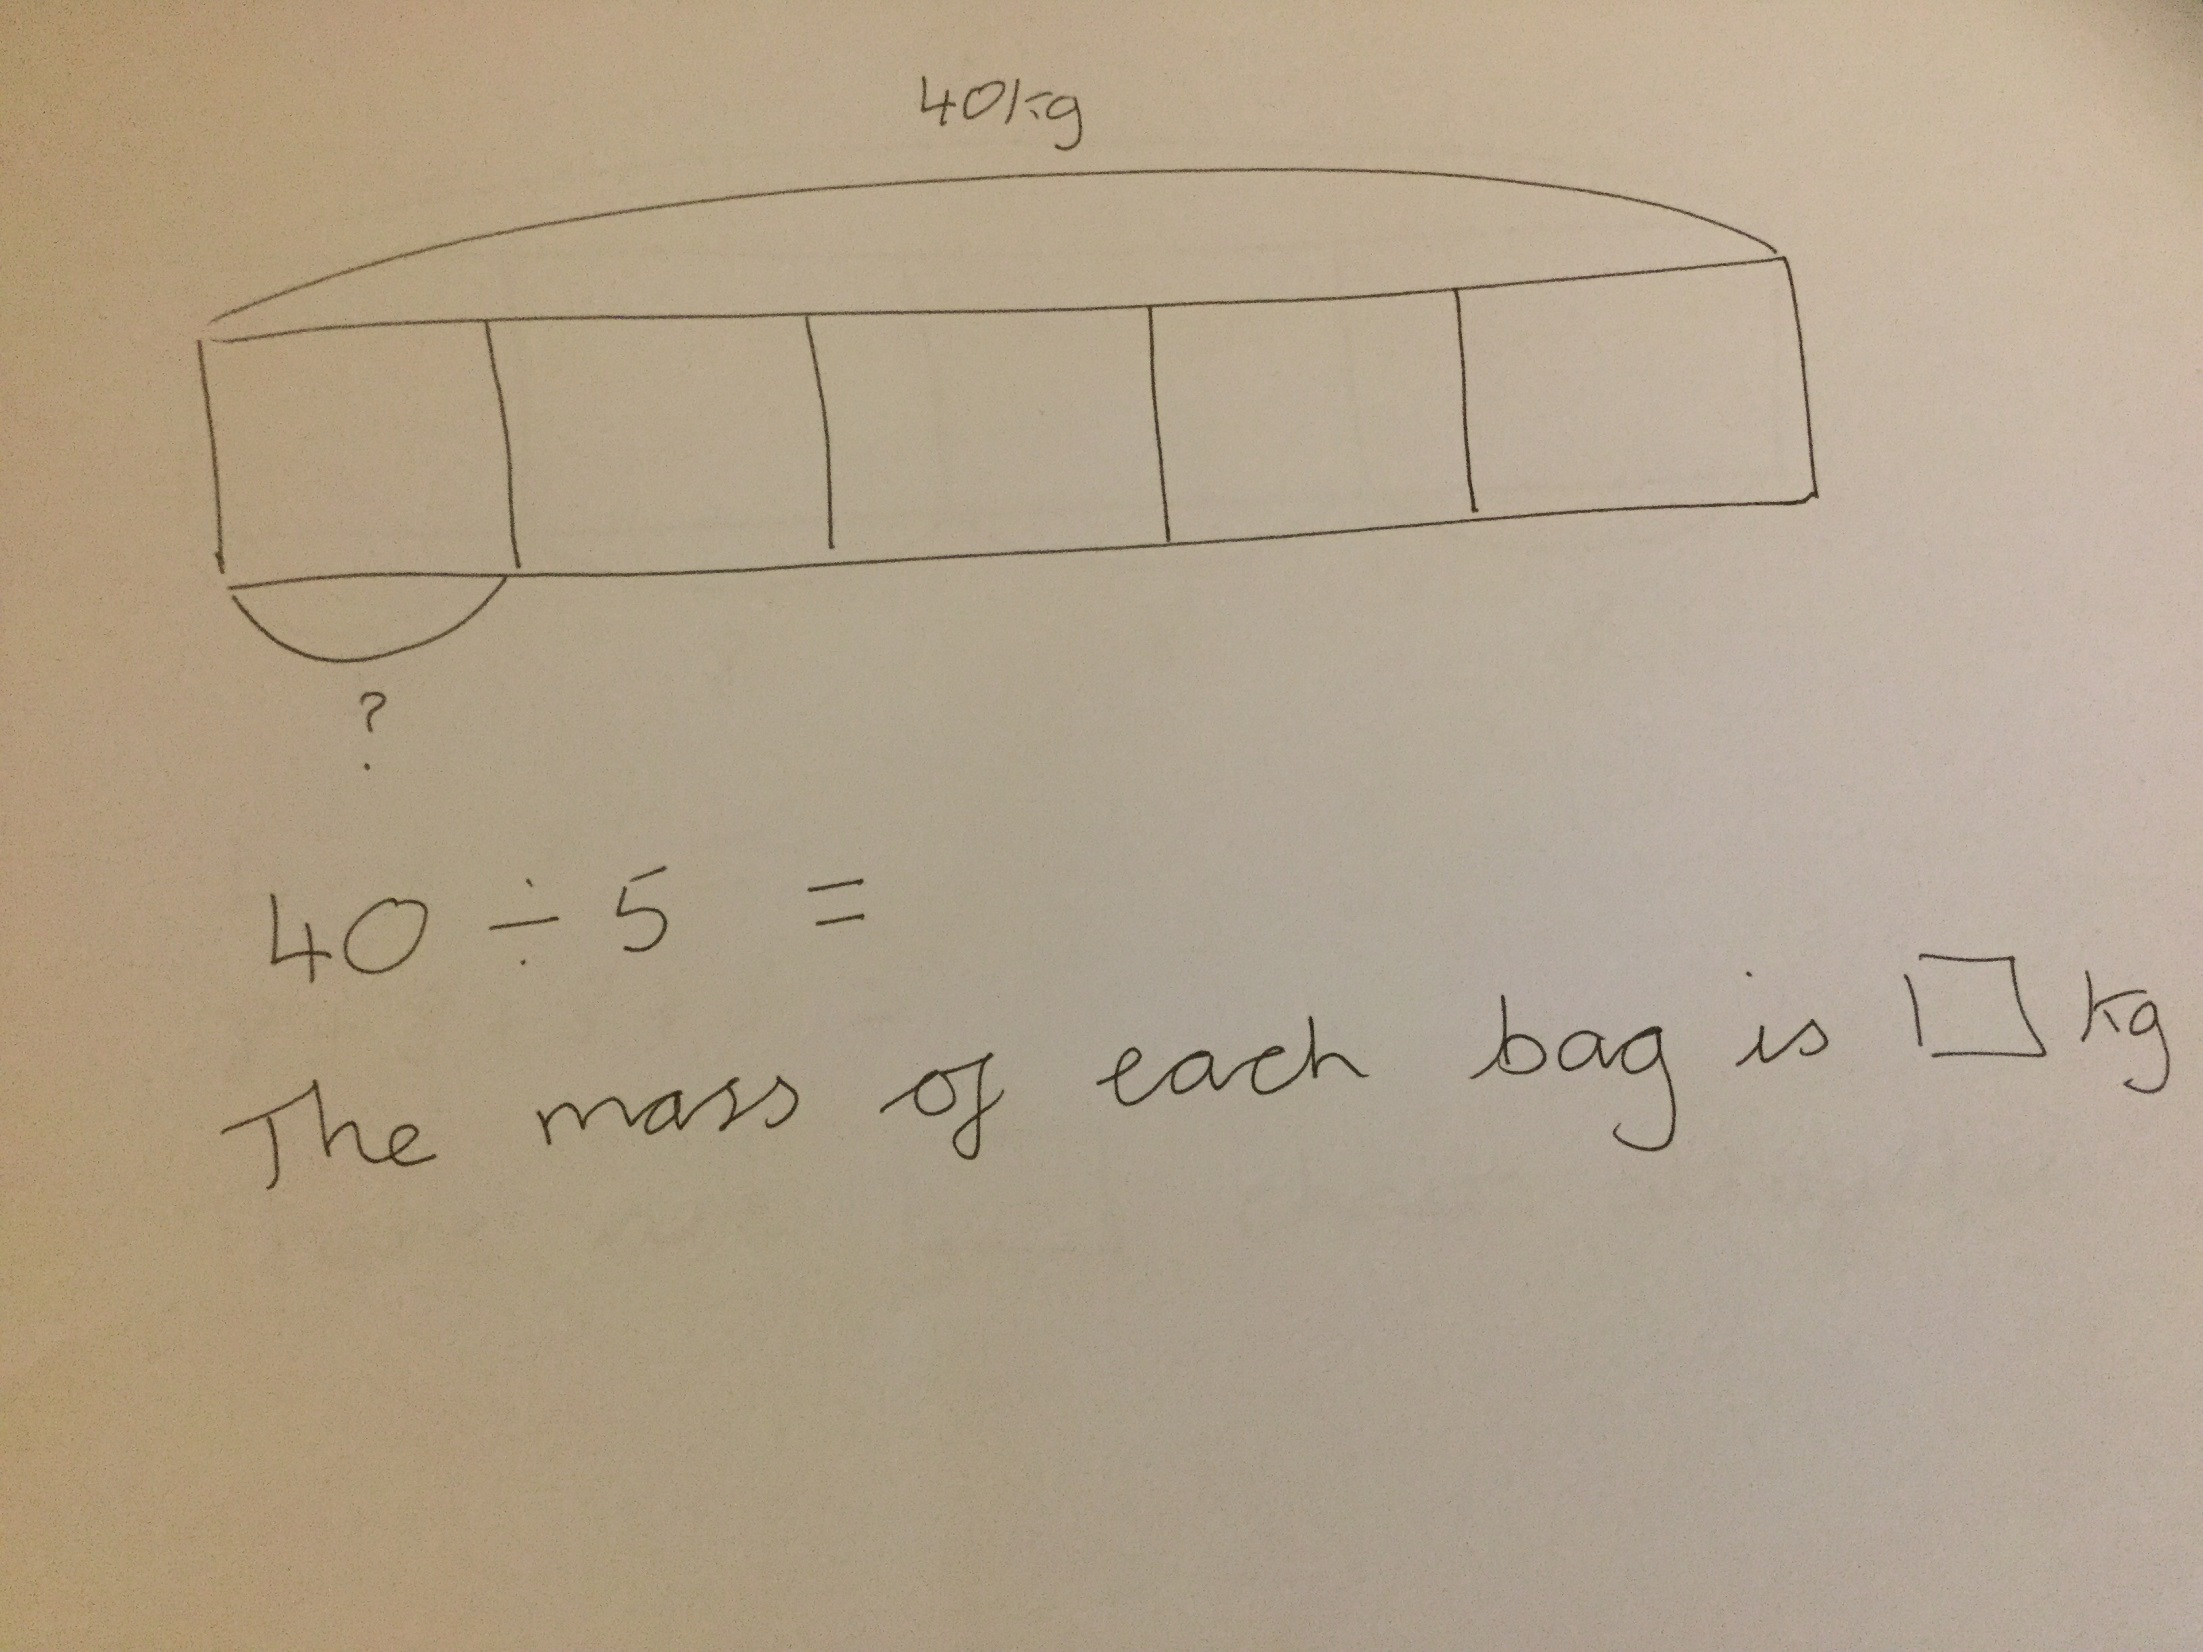 40kg
?
40 ÷ 5 =
The mass of each bag is □ kg